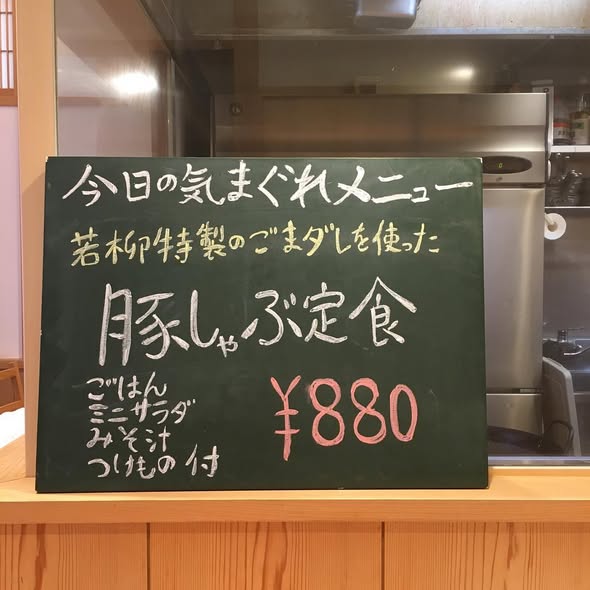 今日の気まぐれメニュー
若柳特製のごまダレを使った
豚しゃぶ定食
ごはん
ミニサラダ
みそ汁
つけもの 付
¥880